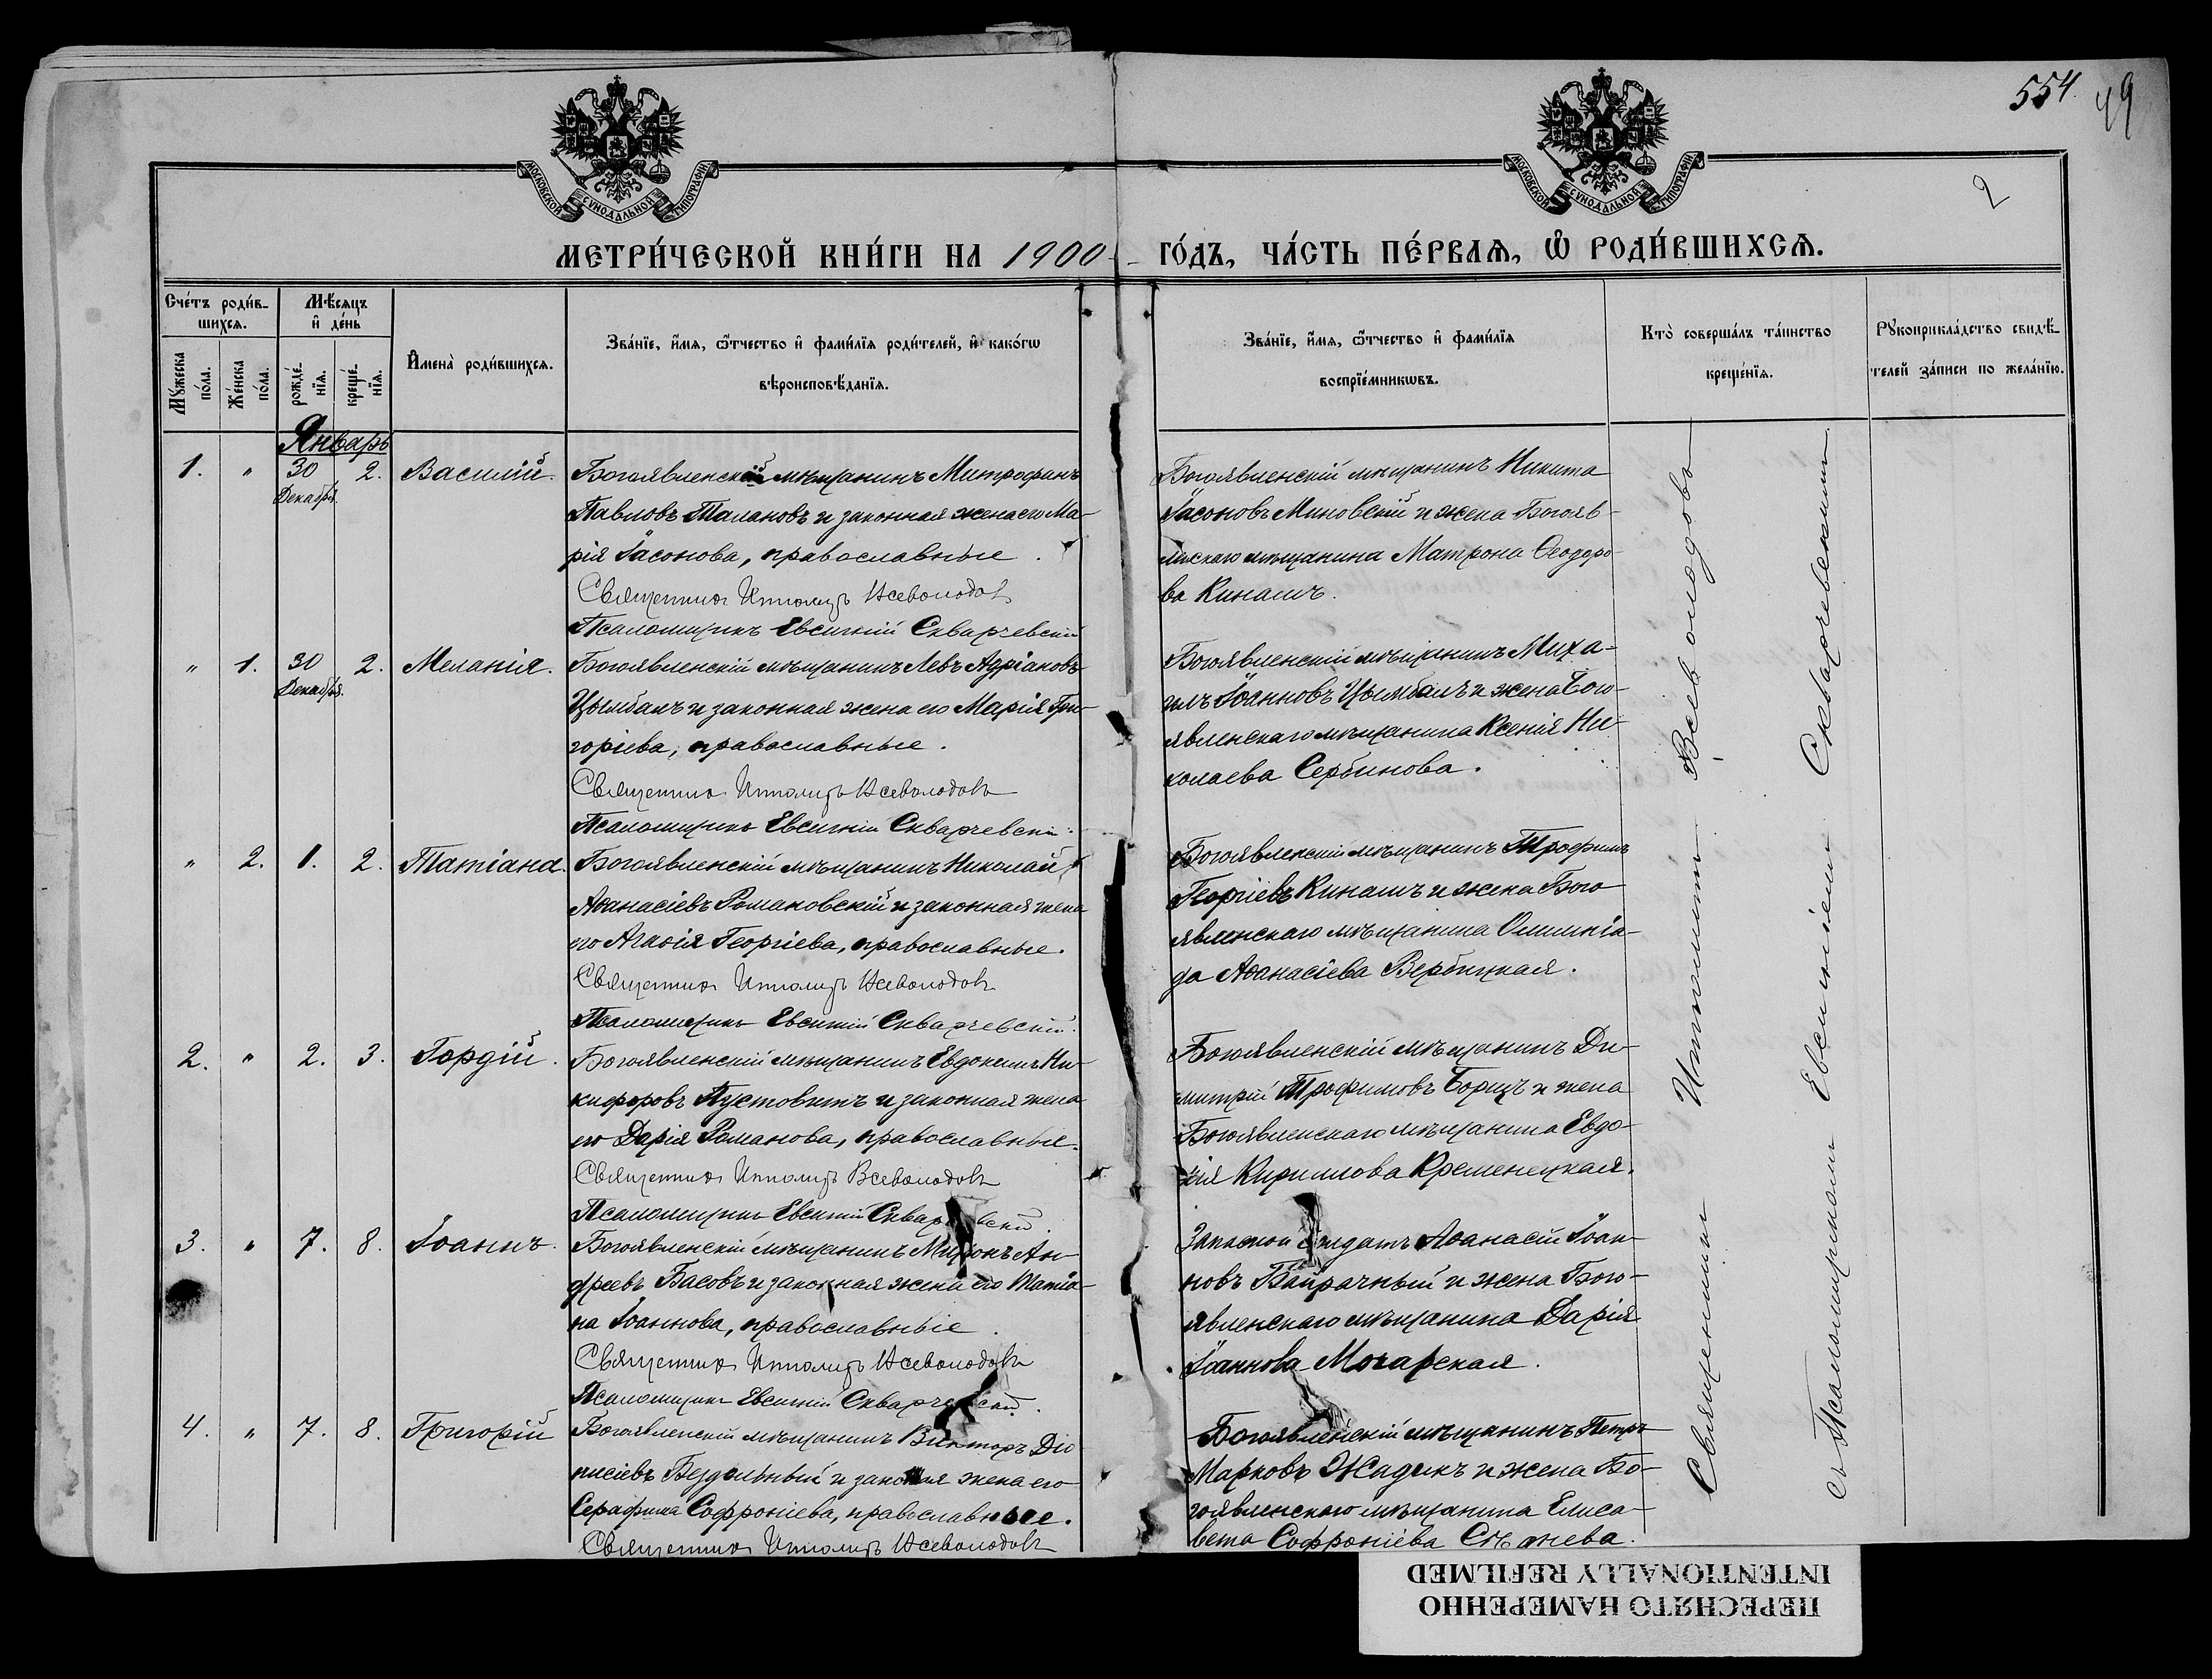 554.
49
2
МОСКОВСКОЙ СѴНОДАЛЬНОЙ ТИПОГРАФІИ
МОСКОВСКОЙ СѴНОДАЛЬНОЙ ТИПОГРАФІИ
МЕТРИ́ЧЕСКОЙ КНИ́ГИ НА 1900 ГО́ДЪ, ЧА́СТЬ ПЕ́РВАѦ, Ѿ РОДИ́ВШИХСѦ.
Сче́тъ роди́в-
шихсѧ.
Мѣ́сѧцъ
и҆ де́нь
Мꙋ́жеска
по́ла.
Же́нска
по́ла.
рожде́-
нїѧ.
креще́-
нїѧ.
И҆мена̀ роди́вшихсѧ.
Зва́нїе, и҆́мѧ, ѻ҆́тчество и҆ фами́лїѧ роди́телей, и҆ како́гѡ
вѣроисповѣ́данїѧ.
Зва́нїе, и҆́мѧ, ѻ҆́тчество и҆ фами́лїѧ
воспрїе́мникѡвъ.
Кто̀ соверша́лъ та́инство
креще́нїѧ.
Рꙋкоприкла́дство свидѣ́-
телей за́писи по жела́нїю.
Январь
1. " 30 Декабря. 2. Василій.
Богоявленскій мѣщанинъ Митрофанъ
Павловъ Талановъ и законная жена его Ма-
рія Іасонова, православные.
Священникъ Ипполитъ Всеволодовъ
Псаломщикъ Евсигній Скварчевскій
Богоявленскій мѣщанинъ Никита
Іасоновъ Миновскій и жена Богояв-
ленскаго мѣщанина Матрона Ѳеодоро-
ва Кинашъ.
" 1. 30 Декабря. 2. Меланія.
Богоявленскій мѣщанинъ Левъ Адріановъ
Цымбалъ и законная жена его Марія Гри-
горіева, православные.
Священникъ Ипполитъ Всеволодовъ
Псаломщикъ Евсигній Скварчевскій.
Богоявленскій мѣщанинъ Миха-
илъ Іоанновъ Цымбалъ и жена Бого-
явленскаго мѣщанина Ксенія Ни-
колаева Сербинова.
" 2. 1. 2. Татіана.
Богоявленскій мѣщанинъ Николай
Аѳанасіевъ Романовскій и законная жена
его Агаѳія Георгіева, православные.
Священникъ Ипполитъ Всеволодовъ
Псаломщикъ Евсигній Скварчевскій.
Богоявленскій мѣщанинъ Трофимъ
Георгіевъ Кинашъ и жена Бого-
явленскаго мѣщанина Олимпіа-
да Аѳанасіева Вербицкая.
2. " 2. 3. Гордій.
Богоявленскій мѣщанинъ Евдокимъ Ни-
кифоровъ Пустовитъ и законная жена
его Дарія Романова, православные.
Священникъ Ипполитъ Всеволодовъ
Псаломщикъ Евсигній Скварчевскій.
Богоявленскій мѣщанинъ Ди-
митрій Трофимовъ Борицъ и жена
Богоявленскаго мѣщанина Евдо-
кія Кириллова Кременецкая.
3. " 7. 8. Іоаннъ.
Богоявленскій мѣщанинъ Миронъ Ан-
дреевъ Басовъ и законная жена его Татіа-
на Іоаннова, православные.
Священникъ Ипполитъ Всеволодовъ
Псаломщикъ Евсигній Скварчевскій.
Запасной солдатъ Аѳанасій Іоан-
новъ Байрачный и жена Бого-
явленскаго мѣщанина Дарія
Іоаннова Мочарская.
4. " 7. 8. Григорій
Богоявленскій мѣщанинъ Викторъ Діо-
нисіевъ Бездольный и законная жена его
Серафима Софроніева, православные.
Священникъ Ипполитъ Всеволодовъ
Богоявленскій мѣщанинъ Петръ
Марковъ Жадикъ и жена Бо-
гоявленскаго мѣщанина Елиса-
вета Софроніева
Священникъ Ипполитъ Всеволодовъ
съ Псаломщикомъ Евсигніемъ Скварчевскимъ
ПЕРЕСНЯТО НАМЕРЕННО
INTENTIONALLY REFILMED